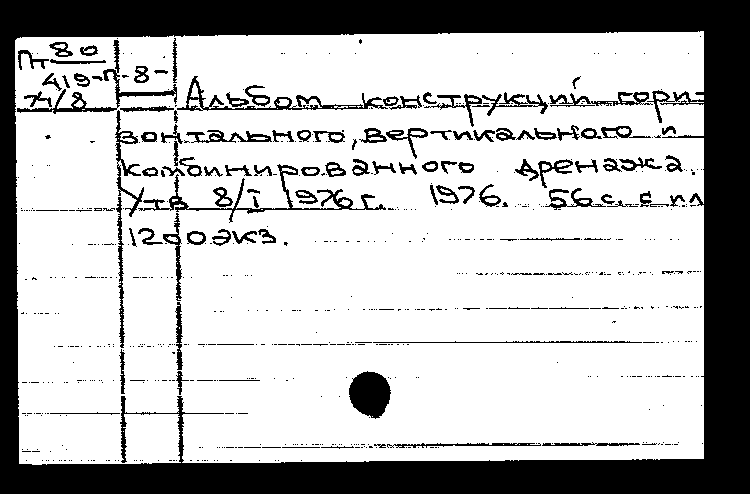 Пт 80
419-п -8-
74/8 Альбом конструкций гори-
зонтального, вертикального и
комбинированного дренажа.
Утв 8/I 1976г. 1976. 56 с. с пл
1200 экз.